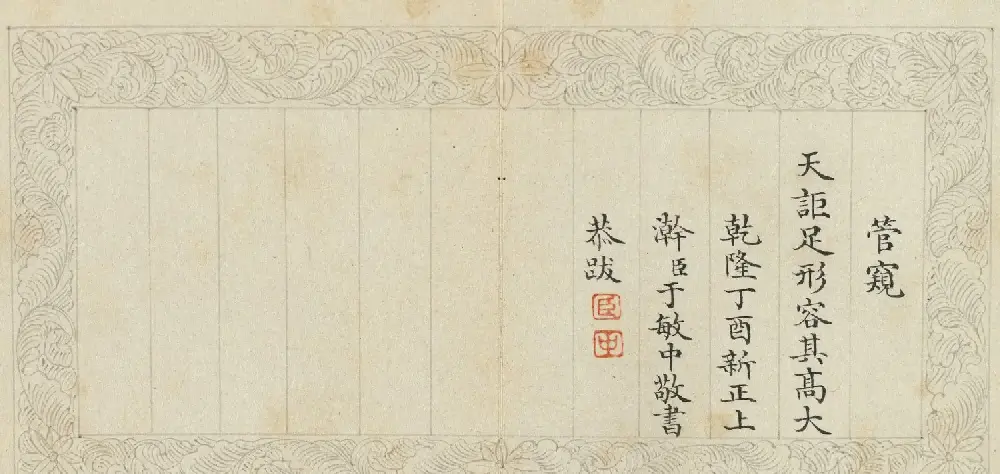 管窺
天詎足形容其髙大
乾隆丁酉新正上
澣臣于敏中敬書
恭跋
臣
中